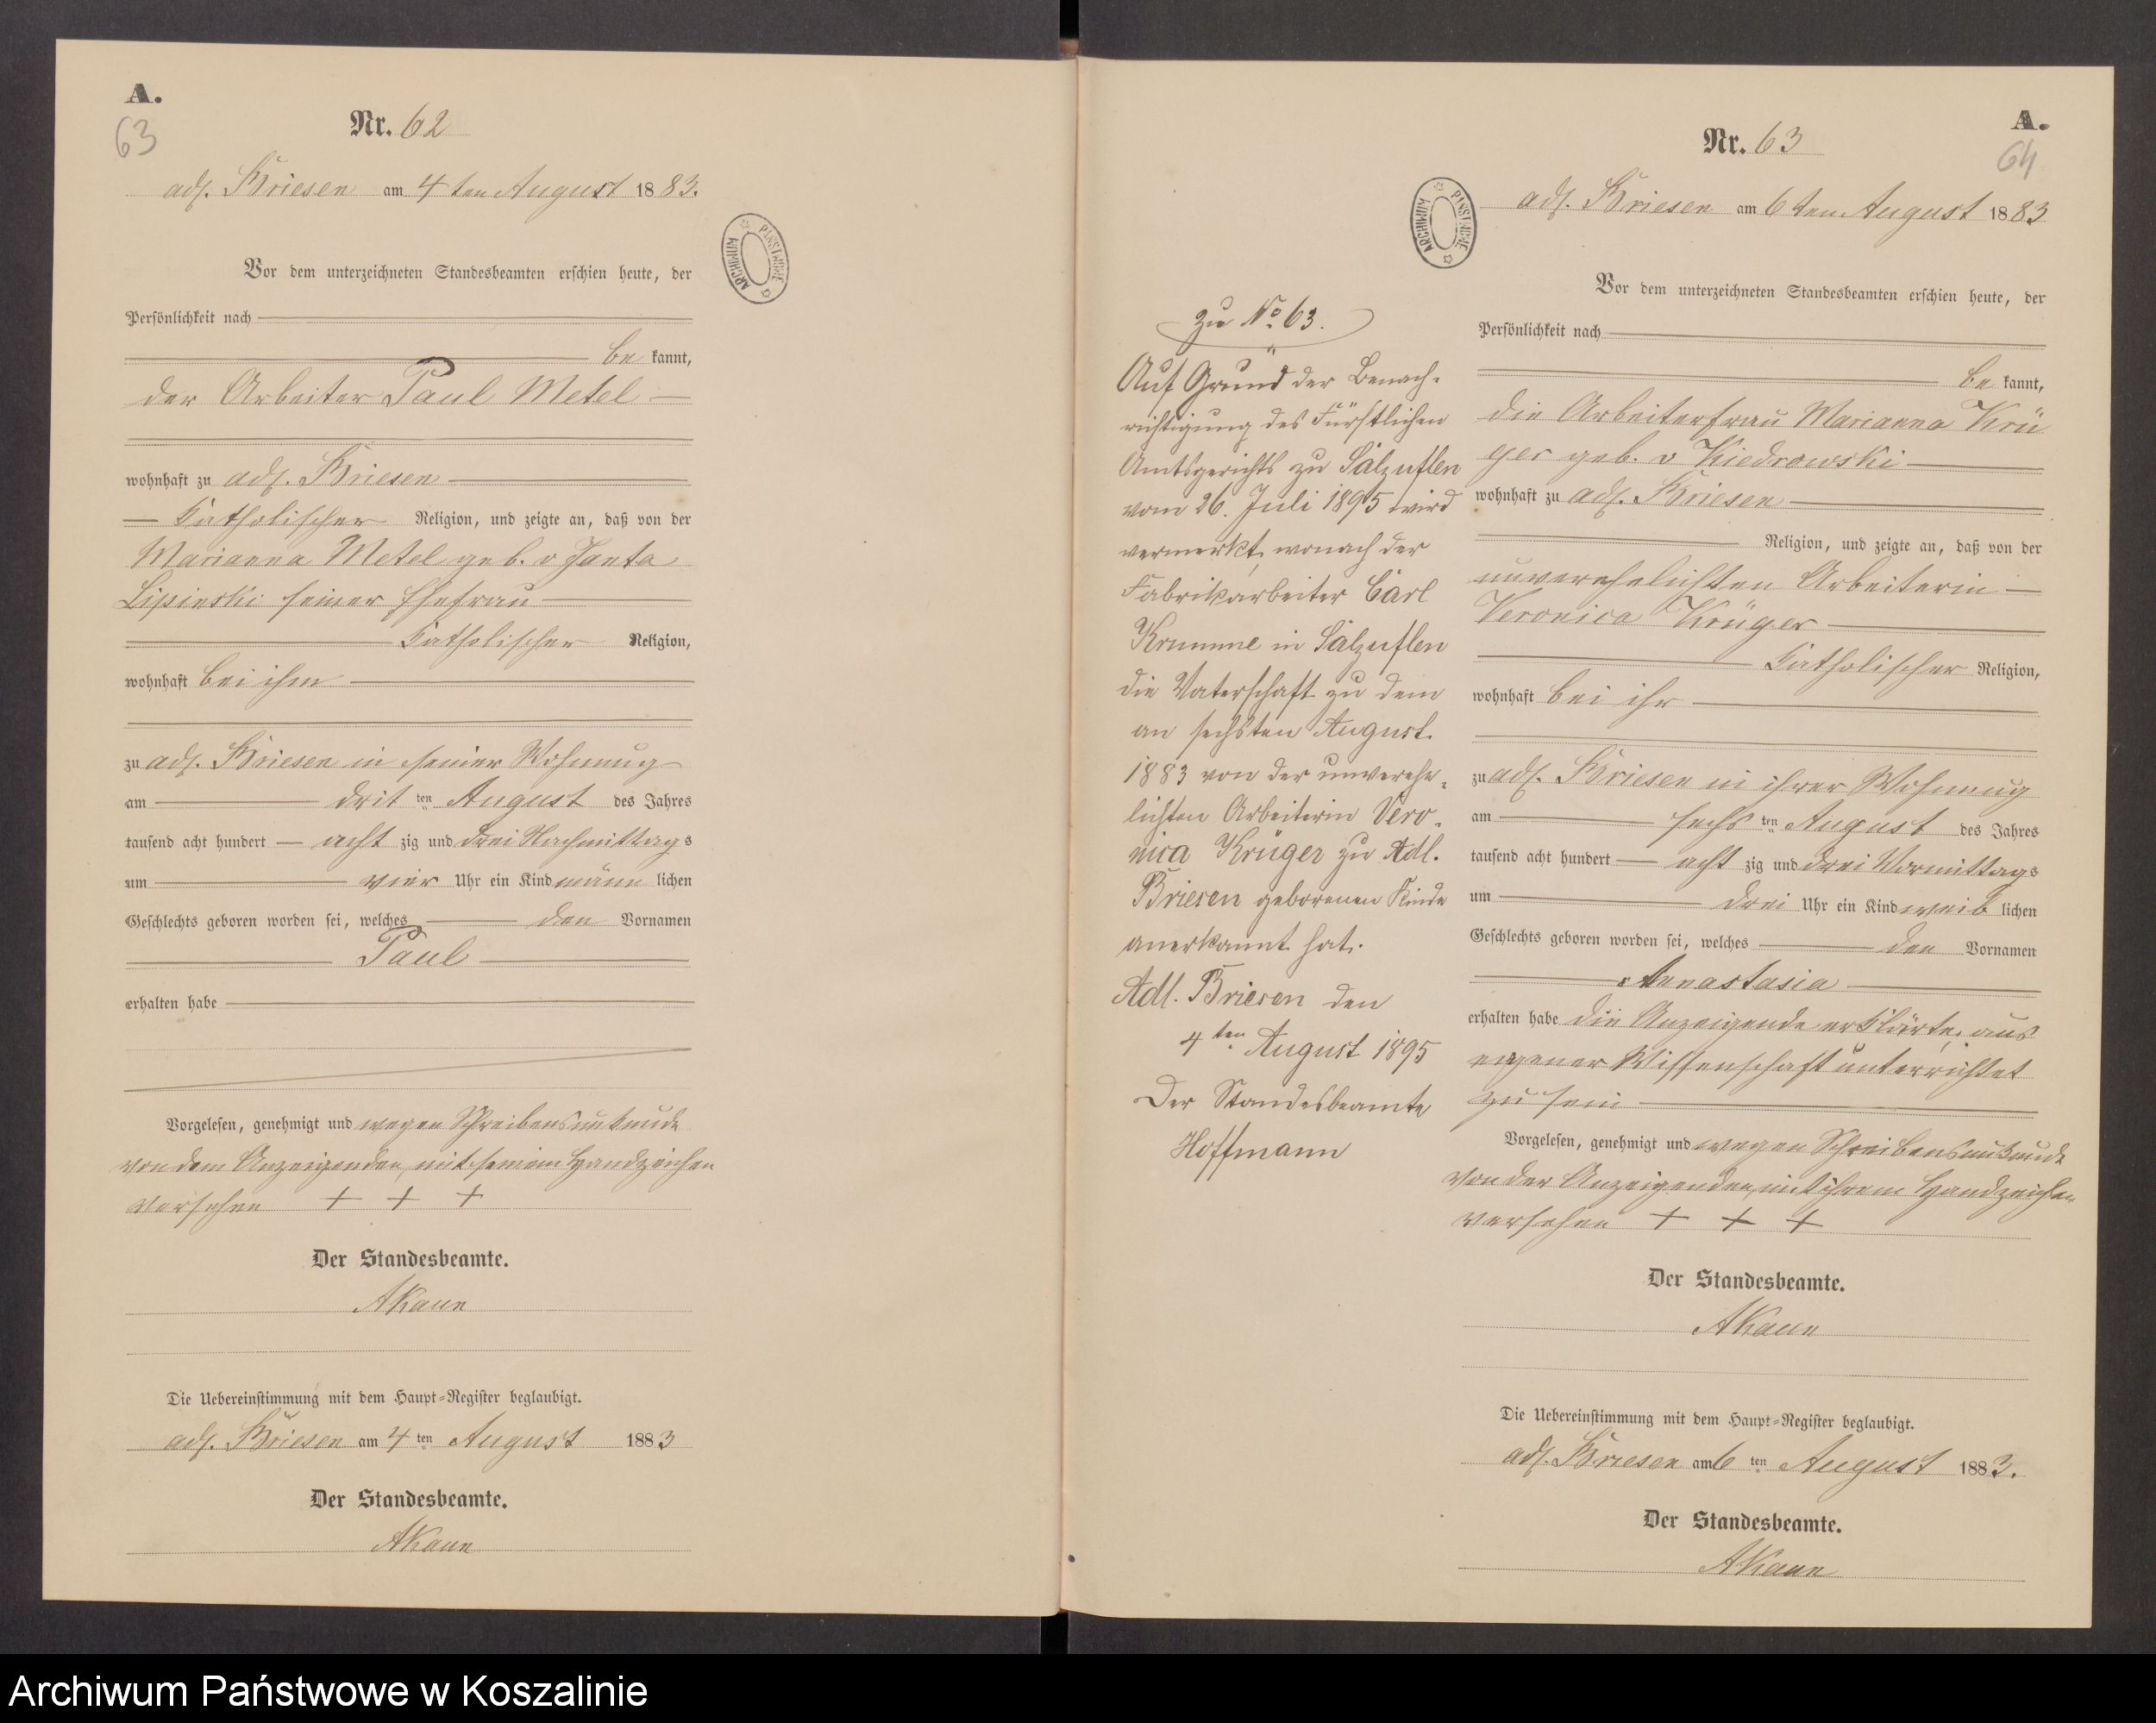 A.
63
Nr. 62
adl. Briesen am 4 ten August 1883.
ARCHIWUM PAŃSTWOWE
Vor dem unterzeichneten Standesbeamten erschien heute, der
Persönlichkeit nach
be kannt,
der Arbeiter Paul Metel
wohnhaft zu adl. Briesen
katholischer Religion, und zeigte an, daß von der
Marianna Metel geb. v Janta
Lipinski seiner Ehefrau
katholischer Religion,
wohnhaft bei ihm
zu adl. Briesen in seiner Wohnung
am drit ten August des Jahres
tausend acht hundert acht zig und drei Nachmittags
um vier Uhr ein Kind männ lichen
Geschlechts geboren worden sei, welches den Vornamen
Paul
erhalten habe
Vorgelesen, genehmigt und wegen Schreibensunkunde
von dem Anzeigenden mit seinem Handzeichen
versehen + + +
Der Standesbeamte.
AKaun
Die Uebereinstimmung mit dem Haupt=Register beglaubigt.
adl. Briesen am 4 ten August 1883
Der Standesbeamte.
AKaun
A.
64
Nr. 63
adl. Briesen am 6 ten August 1883
ARCHIWUM PAŃSTWOWE
zu No 63.
Auf Grund der Benach-
richtigung des Fürstlichen
Amtsgerichts zu Salzuflen
vom 26. Juli 1895 wird
vermerkt, wonach der
Fabrikarbeiter Carl
Krumme in Salzuflen
die Vaterschaft zu dem
an sechsten August.
1883 von der unverehe-
lichten Arbeiterin Vero-
nica Krüger zu Adl.
Briesen geborenen Kinde
anerkannt hat.
Adl. Briesen den
4ten August 1895
Der Standesbeamte
Hoffmann
Vor dem unterzeichneten Standesbeamten erschien heute, der
Persönlichkeit nach
be kannt,
die Arbeiterfrau Marianna Krü
ger geb. v Kiedrowski
wohnhaft zu adl. Briesen
Religion, und zeigte an, daß von der
unverehelichten Arbeiterin
Veronica Krüger
katholischer Religion,
wohnhaft bei ihr
zu adl. Briesen in ihrer Wohnung
am sechs ten August des Jahres
tausend acht hundert acht zig und drei Vormittags
um drei Uhr ein Kind weib lichen
Geschlechts geboren worden sei, welches den Vornamen
Annastasia
erhalten habe die Anzeigende erklärte, aus
eigener Wissenschaft unterrichtet
zu sein
Vorgelesen, genehmigt und wegen Schreibensunkunde
von der Anzeigenden mit ihrem Handzeichen
versehen + + +
Der Standesbeamte.
AKaun
Die Uebereinstimmung mit dem Haupt=Register beglaubigt.
adl. Briesen am 6 ten August 1883.
Der Standesbeamte.
AKaun
Archiwum Państwowe w Koszalinie